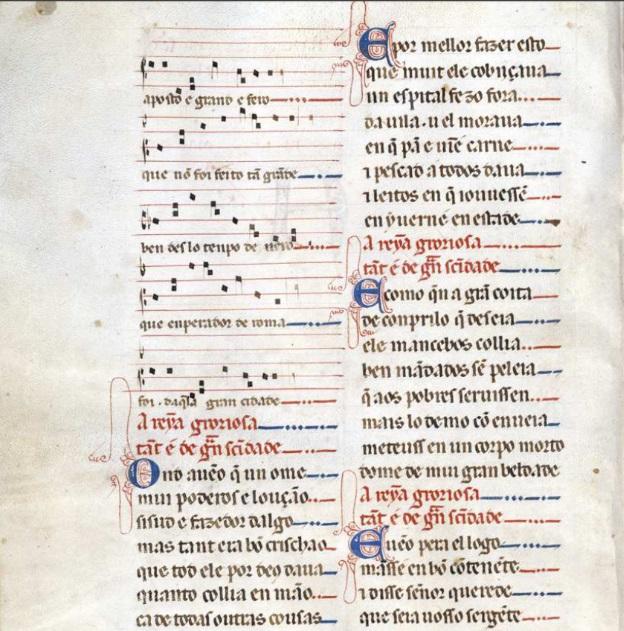 aposto e grand e fero
que nõ foi feito tã grãde
ben des lo tenpo de nero
que enperador de roma
foi . daq̃la gran cidade
A reyña groriosa
tãt é de gr̃n scĩdade
Ond auẽo q̃ un ome
mui poderos e loução
sisud e fazedor dalgo
mas tant era bõ crischão
que tod ele por deo daua
quanto collia en mão
ca de todas outras cousas
E por mellor fazer esto
que muit ele cobiiçaua
un espital fezo fora
da uila . u el moraua
en q̃ pã e uĩe carne
⁊ pescad a todos daua
⁊ leitos en q̃ iouuessẽ
en yuerne en estade
A reyña groriosa
tãt é de gr̃n scĩdade
E como q̃n a grã coita
de conprilo q̃ deseia
ele mancebos collia
ben mãdados sẽ peleia
q̃ aos pobres seruissen
mais lo demo cõ enueia
meteuss en un corpo morto
dome de mui gran beldade
A reyña groriosa
tãt é de gr̃n scĩdade
E uẽo pera el logo
mãsse en bõ cõtenẽte
⁊ disse señor querede
que seia uosso sergẽte